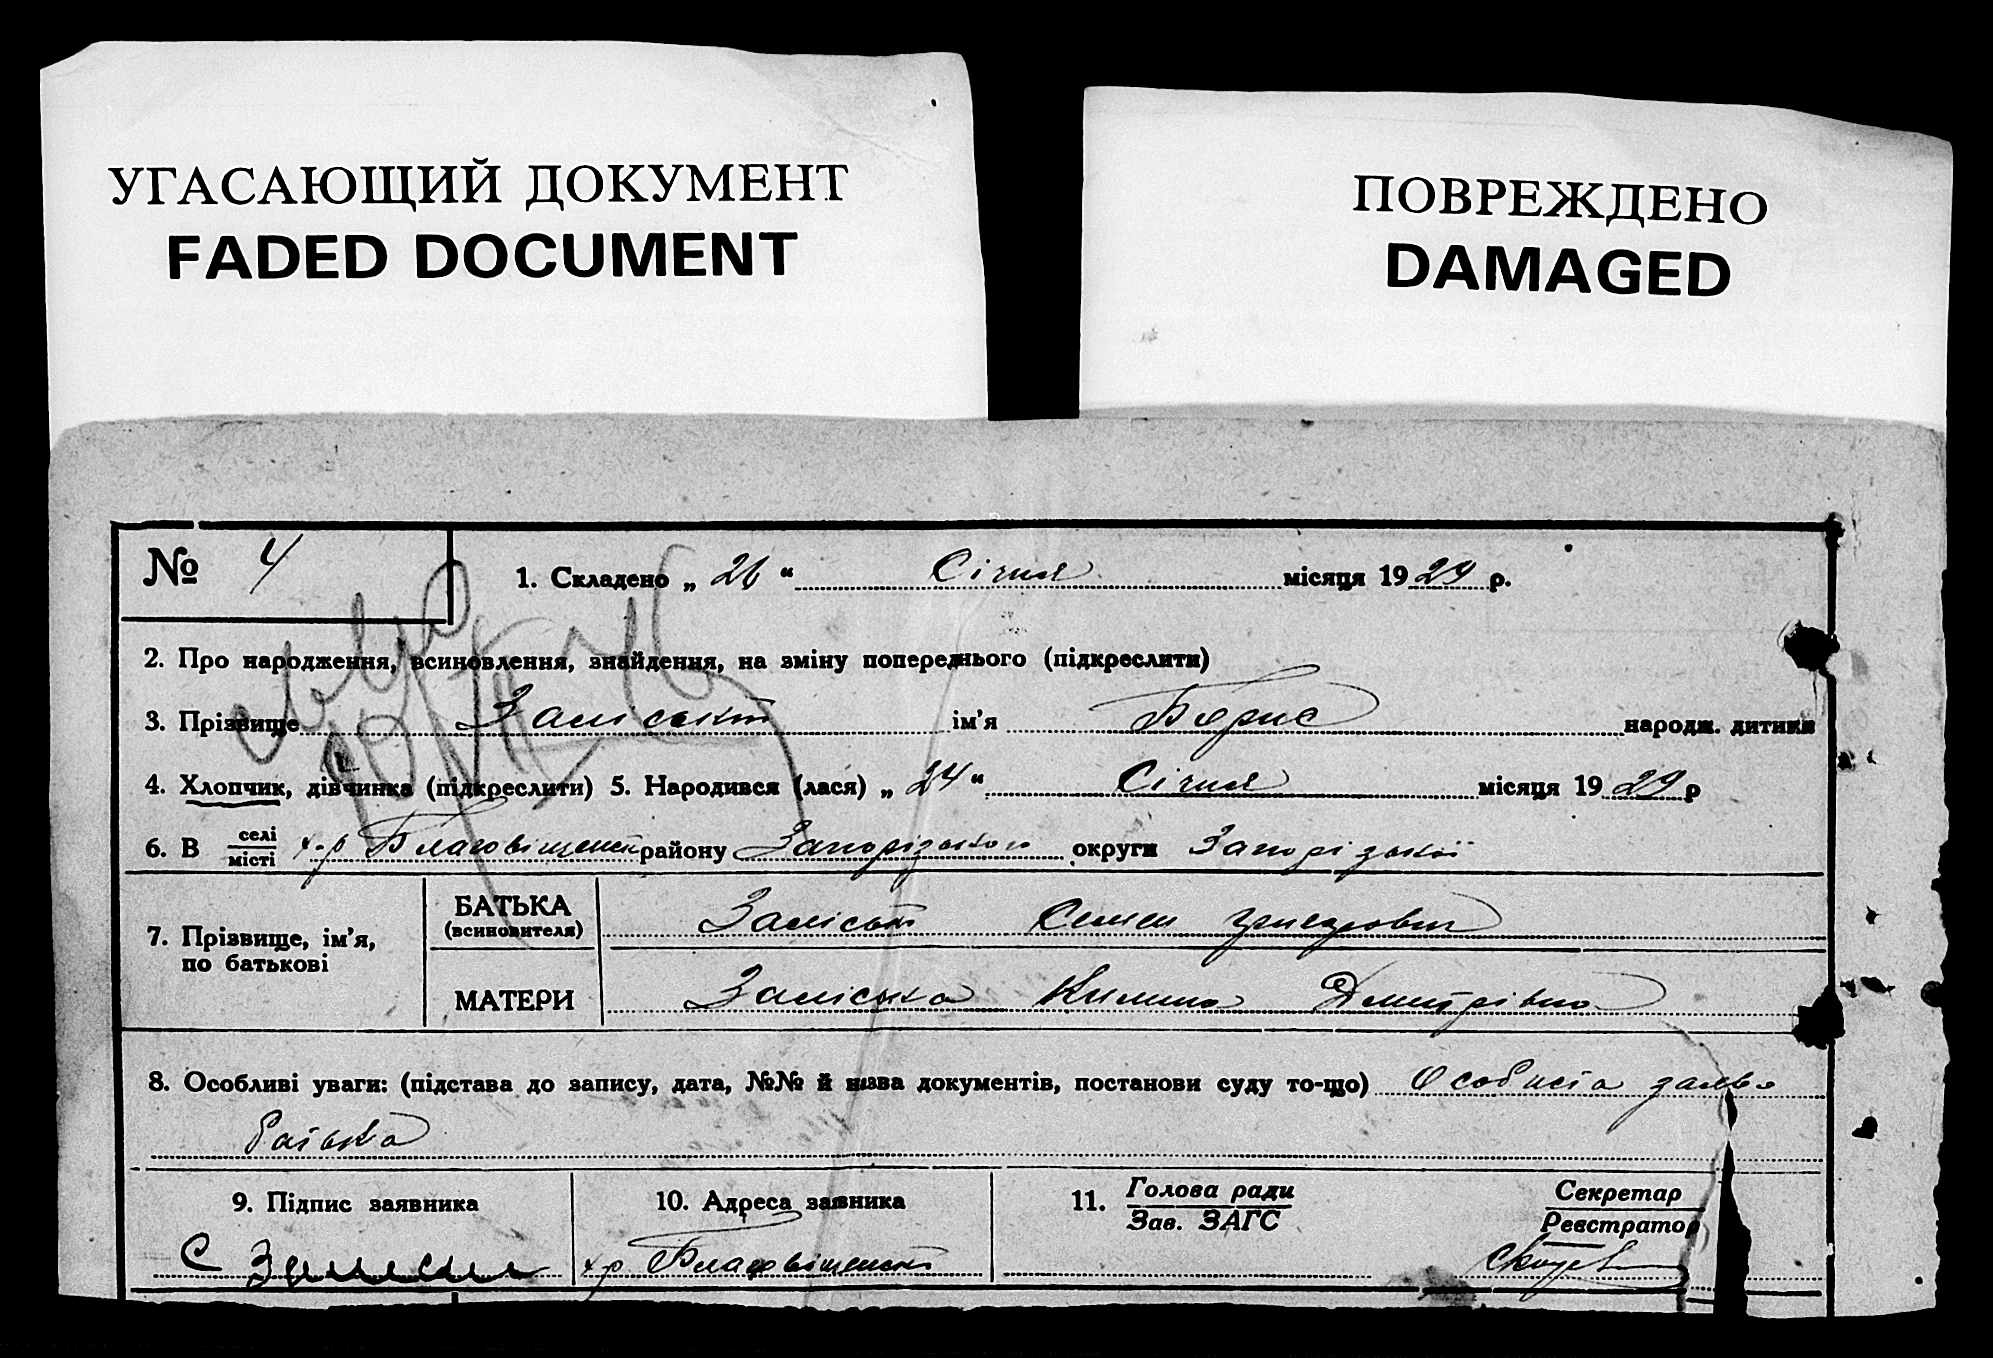 УГАСАЮЩИЙ ДОКУМЕНТ
FADED DOCUMENT
ПОВРЕЖДЕНО
DAMAGED
№ 4
1. Складено „ 26 “ Січня місяця 1929 р.
2. Про народження, всиновлення, знайдення, на зміну попереднього (підкреслити)
3. Прізвище ім'я Борис народж. дитини
4. Хлопчик, дівчинка (підкреслити) 5. Народився (лася) „ 24 “ Січня місяця 1929 р
6. В селі/місті х-р Благовіщенськ району Запорізького округи Запорізької
7. Прізвище, ім'я, по батькові
БАТЬКА (всиновителя) Семен
МАТЕРИ Заліська Килина Дмитрівна
8. Особливі уваги: (підстава до запису, дата, №№ й назва документів, постанови суду то-що) Особиста заява
батька
9. Підпис заявника
С
10. Адреса заявника
х-р Благовіщенськ
11. Голова ради
Зав. ЗАГС
Секретар
Реєстратор